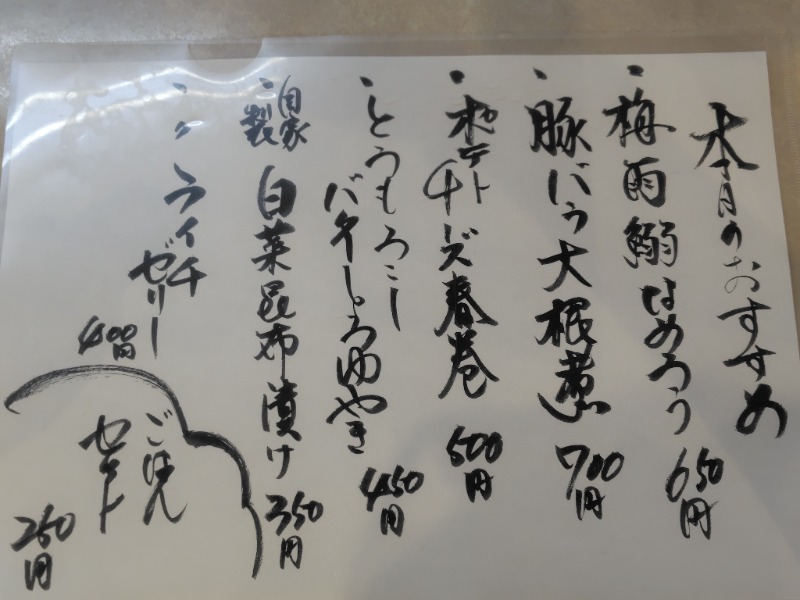 本月のおすすめ
・梅雨鰯なめろう 650円
・豚バラ大根煮 700円
・ポテトチーズ春巻 500円
・とうもろこし
バターしょうゆやき 450円
・自家製 白菜昆布漬け 350円
・〃 ライチ
ゼリー 400円
ごはん
セット 250円